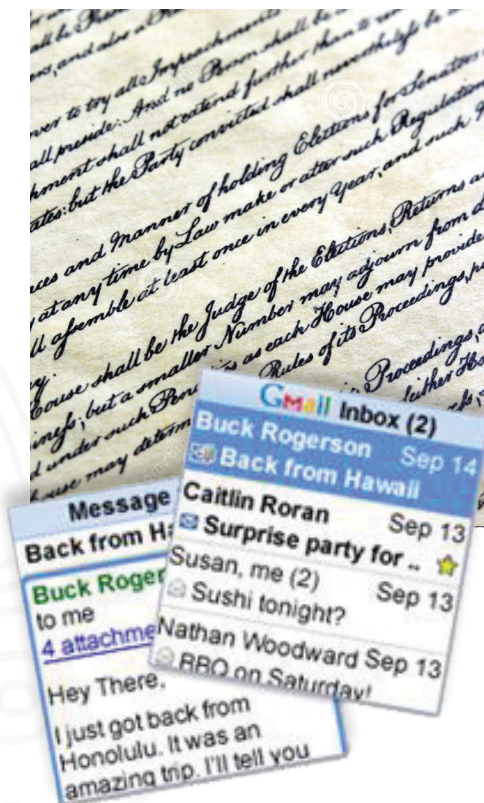 all be
and also a
ver to try all Impeachments
all preside: And no Person shall be
ment shall not extend further than to
ates: but the Party convicted shall nevertheless be
ces and Manner of holding Elections for Senators
at any time by Law make or alter such Regulation
ll assemble at least once in every Year, and such
ouse shall be the Judge of the Elections, Returns
iness; but a smaller Number may adjourn from
under such Pen as each House may provide
ouse may determ Rules of its Proceedings,
Proceedings,
either Ho
Gmail Inbox (2)
Buck Rogerson Sep 14
Back from Hawaii
Caitlin Roran Sep 13
Surprise party for ..
Susan, me (2) Sep 13
Sushi tonight?
Nathan Woodward Sep 13
BBQ on Saturday!
Message
Back from Ha
Buck Roger
to me
4 attachme
Hey There,
I just got back from
Honolulu. It was an
amazing trip. I'll tell you